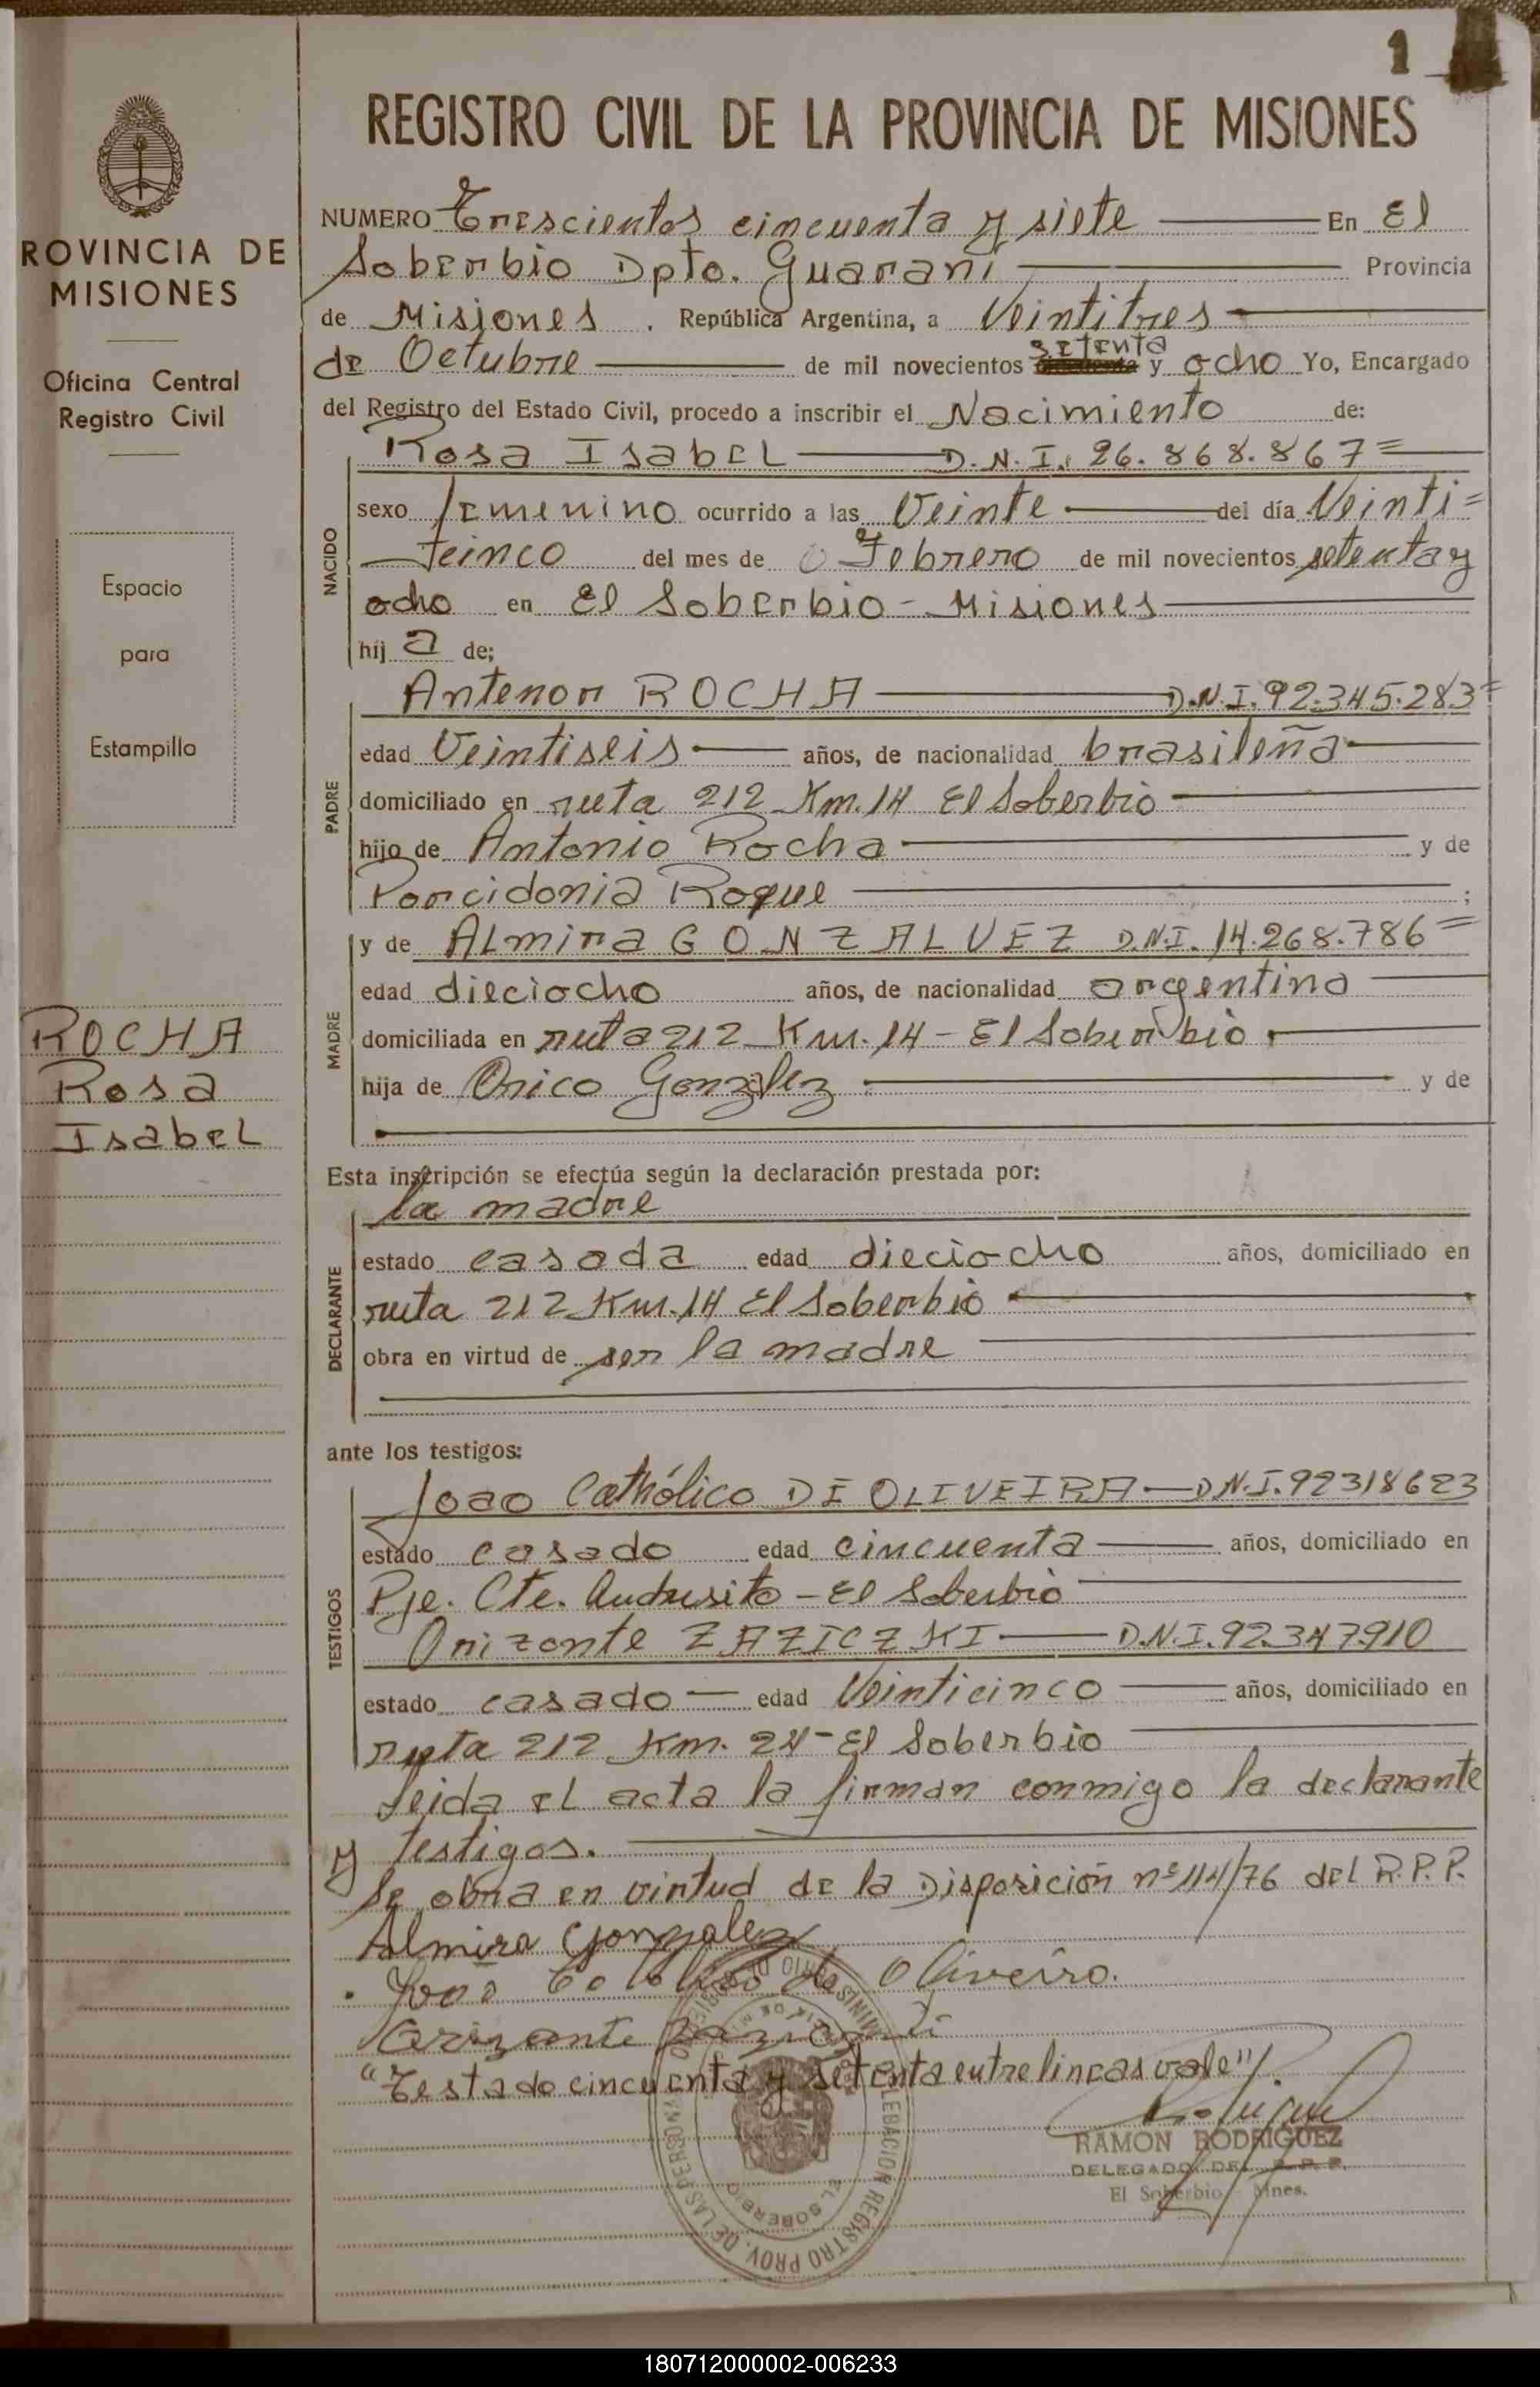 1
REGISTRO CIVIL DE LA PROVINCIA DE MISIONES
ROVINCIA DE
MISIONES
Oficina Central
Registro Civil
Espacio
para
Estampilla
ROCHA
Rosa
Isabel
NUMERO Trescientos cincuenta y siete En El
Soberbio Dpto. Guarani Provincia
de Misiones . República Argentina, a Veintitres
de Octubre de mil novecientos setenta y ocho Yo, Encargado
del Registro del Estado Civil, procedo a inscribir el Nacimiento de:
Rosa Isabel D.N.I. 26.868.867=
NACIDO
sexo femenino ocurrido a las Veinte del día Veinti=
cinco del mes de Febrero de mil novecientos setenta y
ocho en El Soberbio - Misiones
hij a de;
Antenor ROCHA D.N.I. 92.345.283=
PADRE
edad Veintiseis años, de nacionalidad brasileña
domiciliado en ruta 212 Km. 14 El Soberbio
hijo de Antonio Rocha y de
Porcidonia Roque ;
y de Almira GONZALVEZ D.N.I. 14.268.786=
MADRE
edad dieciocho años, de nacionalidad argentina
domiciliada en ruta 212 Km. 14 - El Soberbio
hija de Orico Gonzalez y de
Esta inscripción se efectúa según la declaración prestada por:
la madre
DECLARANTE
estado casada edad dieciocho años, domiciliado en
ruta 212 Km. 14 El Soberbio
obra en virtud de ser la madre
ante los testigos:
Joao Cathólico DE OLIVEIRA - D.N.I. 92318623
TESTIGOS
estado casado edad cincuenta años, domiciliado en
Pje. Cte. Andresito - El Soberbio
Orizonte ZAZICZKI D.N.I. 92.347.910
estado casado edad Veinticinco años, domiciliado en
ruta 212 Km. 24 - El Soberbio
leida el acta la firman conmigo la declarante
y testigos.
Se obra en virtud de la Disposición nº 114/76 del R.P.P.
Almira Gonzalez
Joao de Oliveira.
Orizonte
"Testado cincuenta y setenta entrelineas vale"
RAMON RODRIGUEZ
DELEGADO DEL R.P.P.
El Soberbio - Mnes.
REGISTRO PROV. DE LAS PERSONAS
EL SOBERBIO
180712000002-006233